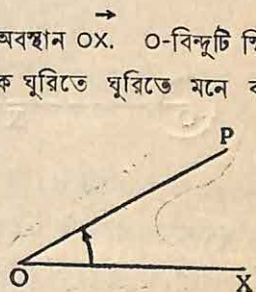 অবস্থান OX. O-বিন্দুটি
ঘুরিতে ঘুরিতে মনে
P
O
X